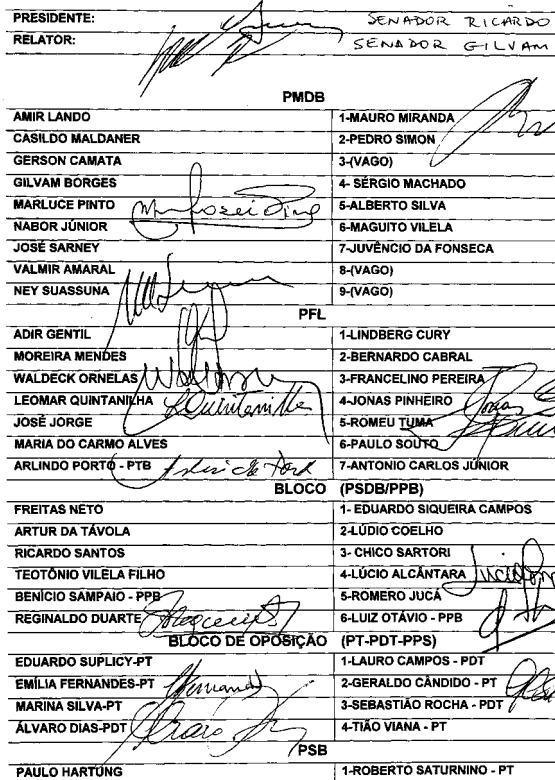 PRESIDENTE: SENADOR RICARDO
RELATOR: SENADOR GILVAM
PMDB
AMIR LANDO 1-MAURO MIRANDA
CASILDO MALDANER 2-PEDRO SIMON
GERSON CAMATA 3-(VAGO)
GILVAM BORGES 4- SÉRGIO MACHADO
MARLUCE PINTO 5-ALBERTO SILVA
NABOR JÚNIOR 6-MAGUITO VILELA
JOSÉ SARNEY 7-JUVÊNCIO DA FONSECA
VALMIR AMARAL 8-(VAGO)
NEY SUASSUNA 9-(VAGO)
PFL
ADIR GENTIL 1-LINDBERG CURY
MOREIRA MENDES 2-BERNARDO CABRAL
WALDECK ORNELAS 3-FRANCELINO PEREIRA
LEOMAR QUINTANILHA 4-JONAS PINHEIRO
JOSÉ JORGE 5-ROMEU TUMA
MARIA DO CARMO ALVES 6-PAULO SOUTO
ARLINDO PORTO - PTB 7-ANTONIO CARLOS JÚNIOR
BLOCO (PSDB/PPB)
FREITAS NETO 1- EDUARDO SIQUEIRA CAMPOS
ARTUR DA TÁVOLA 2-LÚDIO COELHO
RICARDO SANTOS 3- CHICO SARTORI
TEOTÔNIO VILELA FILHO 4-LÚCIO ALCÂNTARA
BENÍCIO SAMPAIO - PPB 5-ROMERO JUCÁ
REGINALDO DUARTE 6-LUIZ OTÁVIO - PPB
BLOCO DE OPOSIÇÃO (PT-PDT-PPS)
EDUARDO SUPLICY-PT 1-LAURO CAMPOS - PDT
EMÍLIA FERNANDES-PT 2-GERALDO CÂNDIDO - PT
MARINA SILVA-PT 3-SEBASTIÃO ROCHA - PDT
ÁLVARO DIAS-PDT 4-TIÃO VIANA - PT
PSB
PAULO HARTUNG 1-ROBERTO SATURNINO - PT